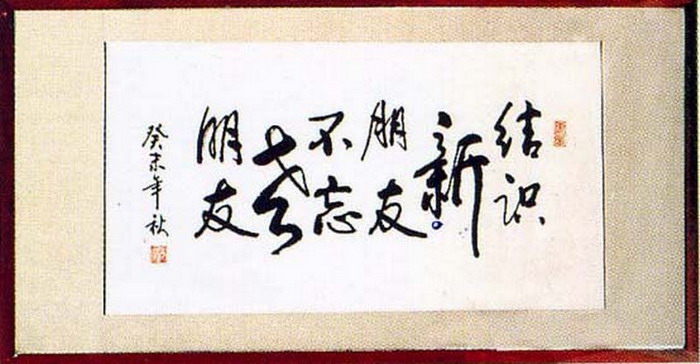 结识
新
朋友
不忘
老
朋友
癸未年秋